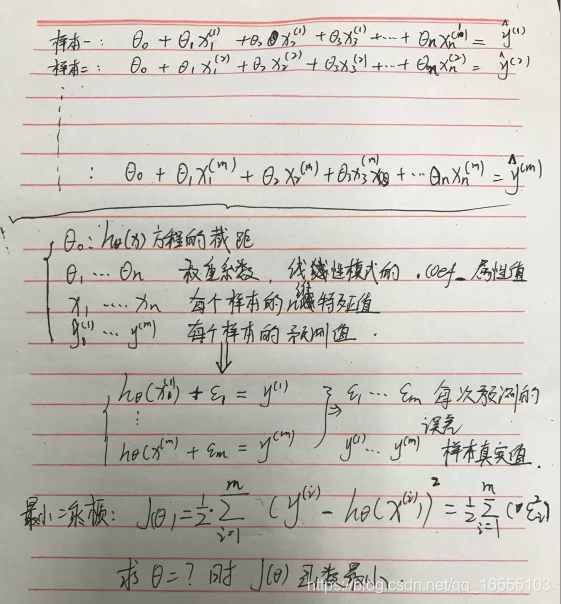 样本一: θ₀ + θ₁x₁⁽¹⁾ + θ₂x₂⁽¹⁾ + θ₃x₃⁽¹⁾ + ... + θₙxₙ⁽¹⁾ = ŷ⁽¹⁾
样本二: θ₀ + θ₁x₁⁽²⁾ + θ₂x₂⁽²⁾ + θ₃x₃⁽²⁾ + ... + θₙxₙ⁽²⁾ = ŷ⁽²⁾
: θ₀ + θ₁x₁⁽ᵐ⁾ + θ₂x₂⁽ᵐ⁾ + θ₃x₃⁽ᵐ⁾ + ... θₙxₙ⁽ᵐ⁾ = ŷ⁽ᵐ⁾
θ₀: hθ(x) 方程的截距
θ₁ ... θₙ 权重系数, 线性模式的 .coef_ 属性值
x₁ ..... xₙ 每个样本的n维特征值
ŷ⁽¹⁾ ... y⁽ᵐ⁾ 每个样本的预测值.
⇓
hθ(x⁽¹⁾) + ε₁ = y⁽¹⁾ ⇒ ε₁ ... εₘ 每次预测的误差
⋮
hθ(x⁽ᵐ⁾) + εₘ = y⁽ᵐ⁾ y⁽¹⁾ ... y⁽ᵐ⁾ 样本真实值.
最小二乘: J(θ) = ½·∑ᵢ₌₁ᵐ (y⁽ⁱ⁾ - hθ(x⁽ⁱ⁾))² = ½∑ᵢ₌₁ᵐ (εᵢ²)
求 θ = ? 时 J(θ) 函数最小.
https://blog.csdn.net/qq_16555103